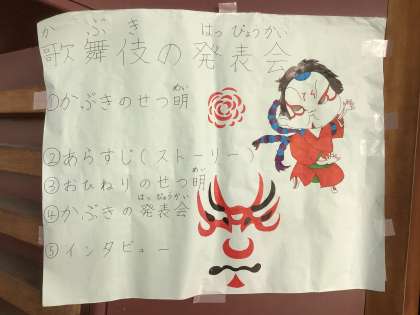 かぶき はっぴょうかい
歌舞伎の発表会
めい
①かぶきのせつ明
②あらすじ(ストーリー)
めい
③おひねりのせつ明
はっぴょうかい
④かぶきの発表会
⑤インタビュー